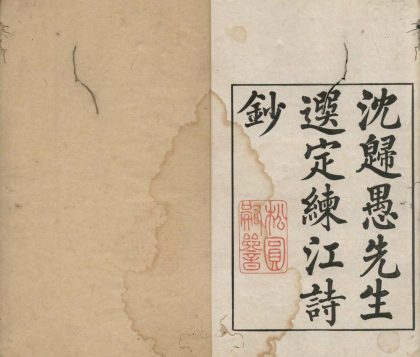 沈歸愚先生
選定練江詩
鈔
松圓